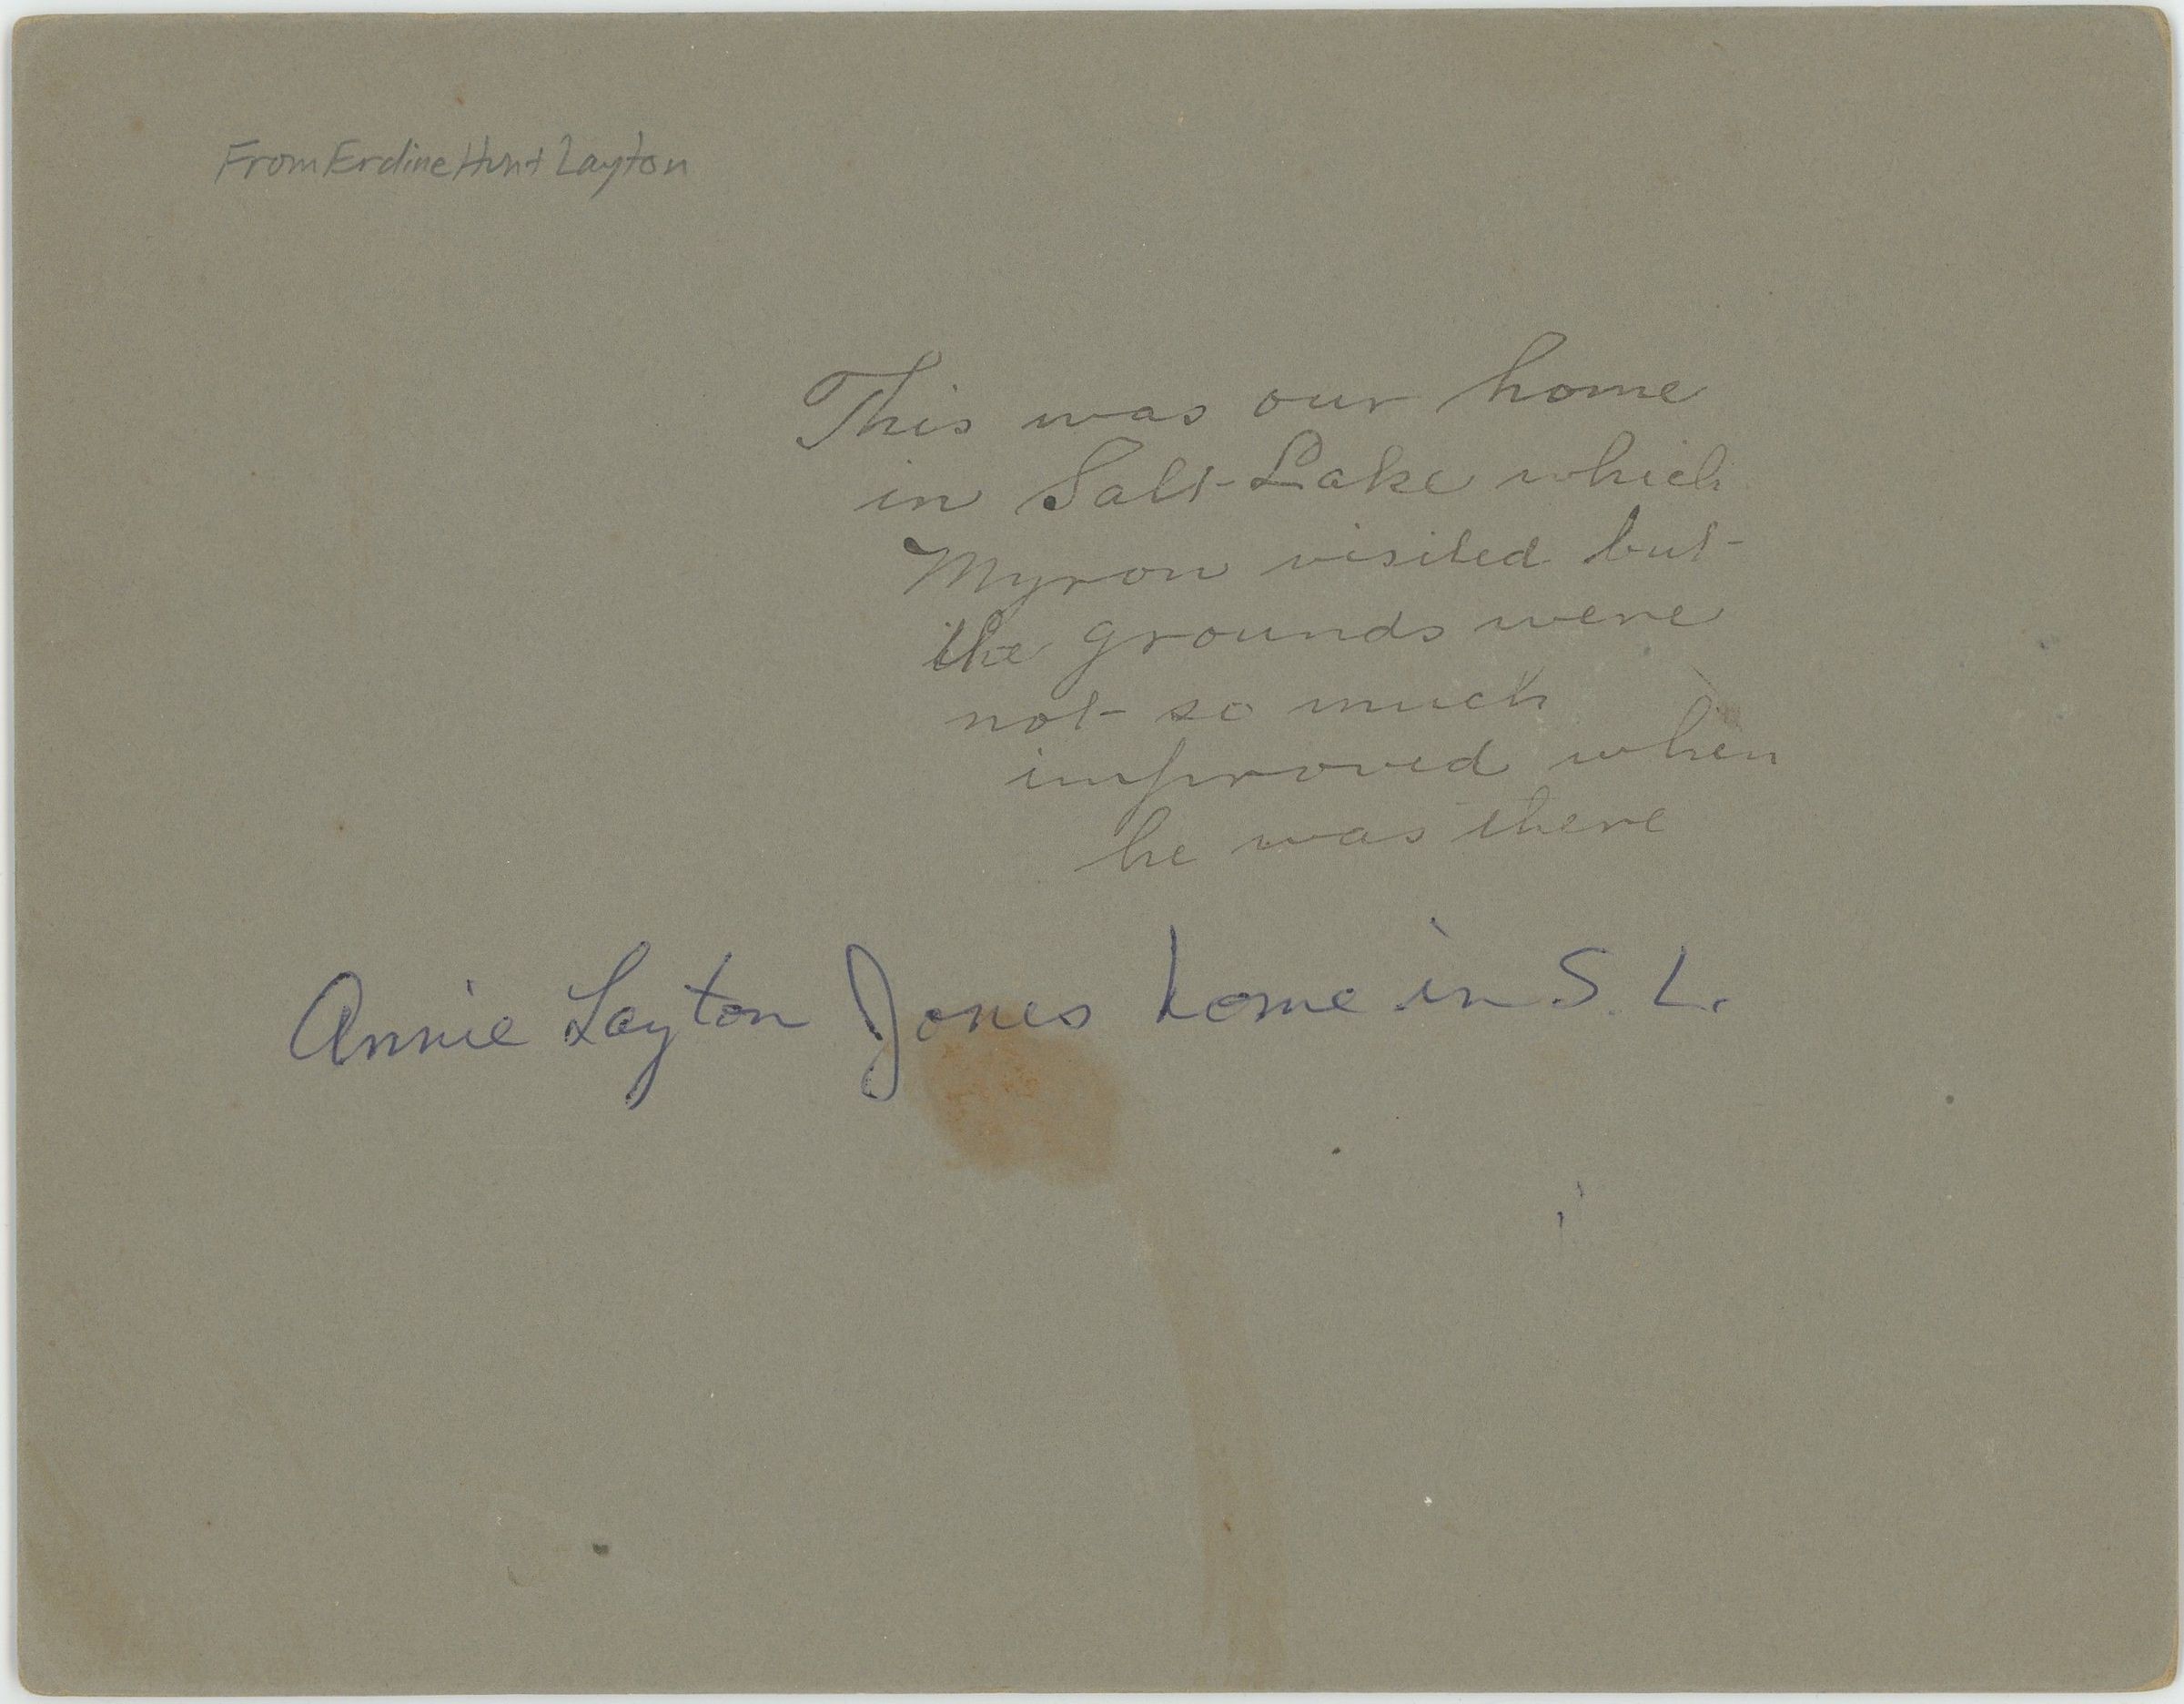 From Erdine Hunt Layton
This was our home
in Salt Lake which
Myron visited but
the grounds were
not so much
improved when
he was there
Annie Layton Jones home in S. L.